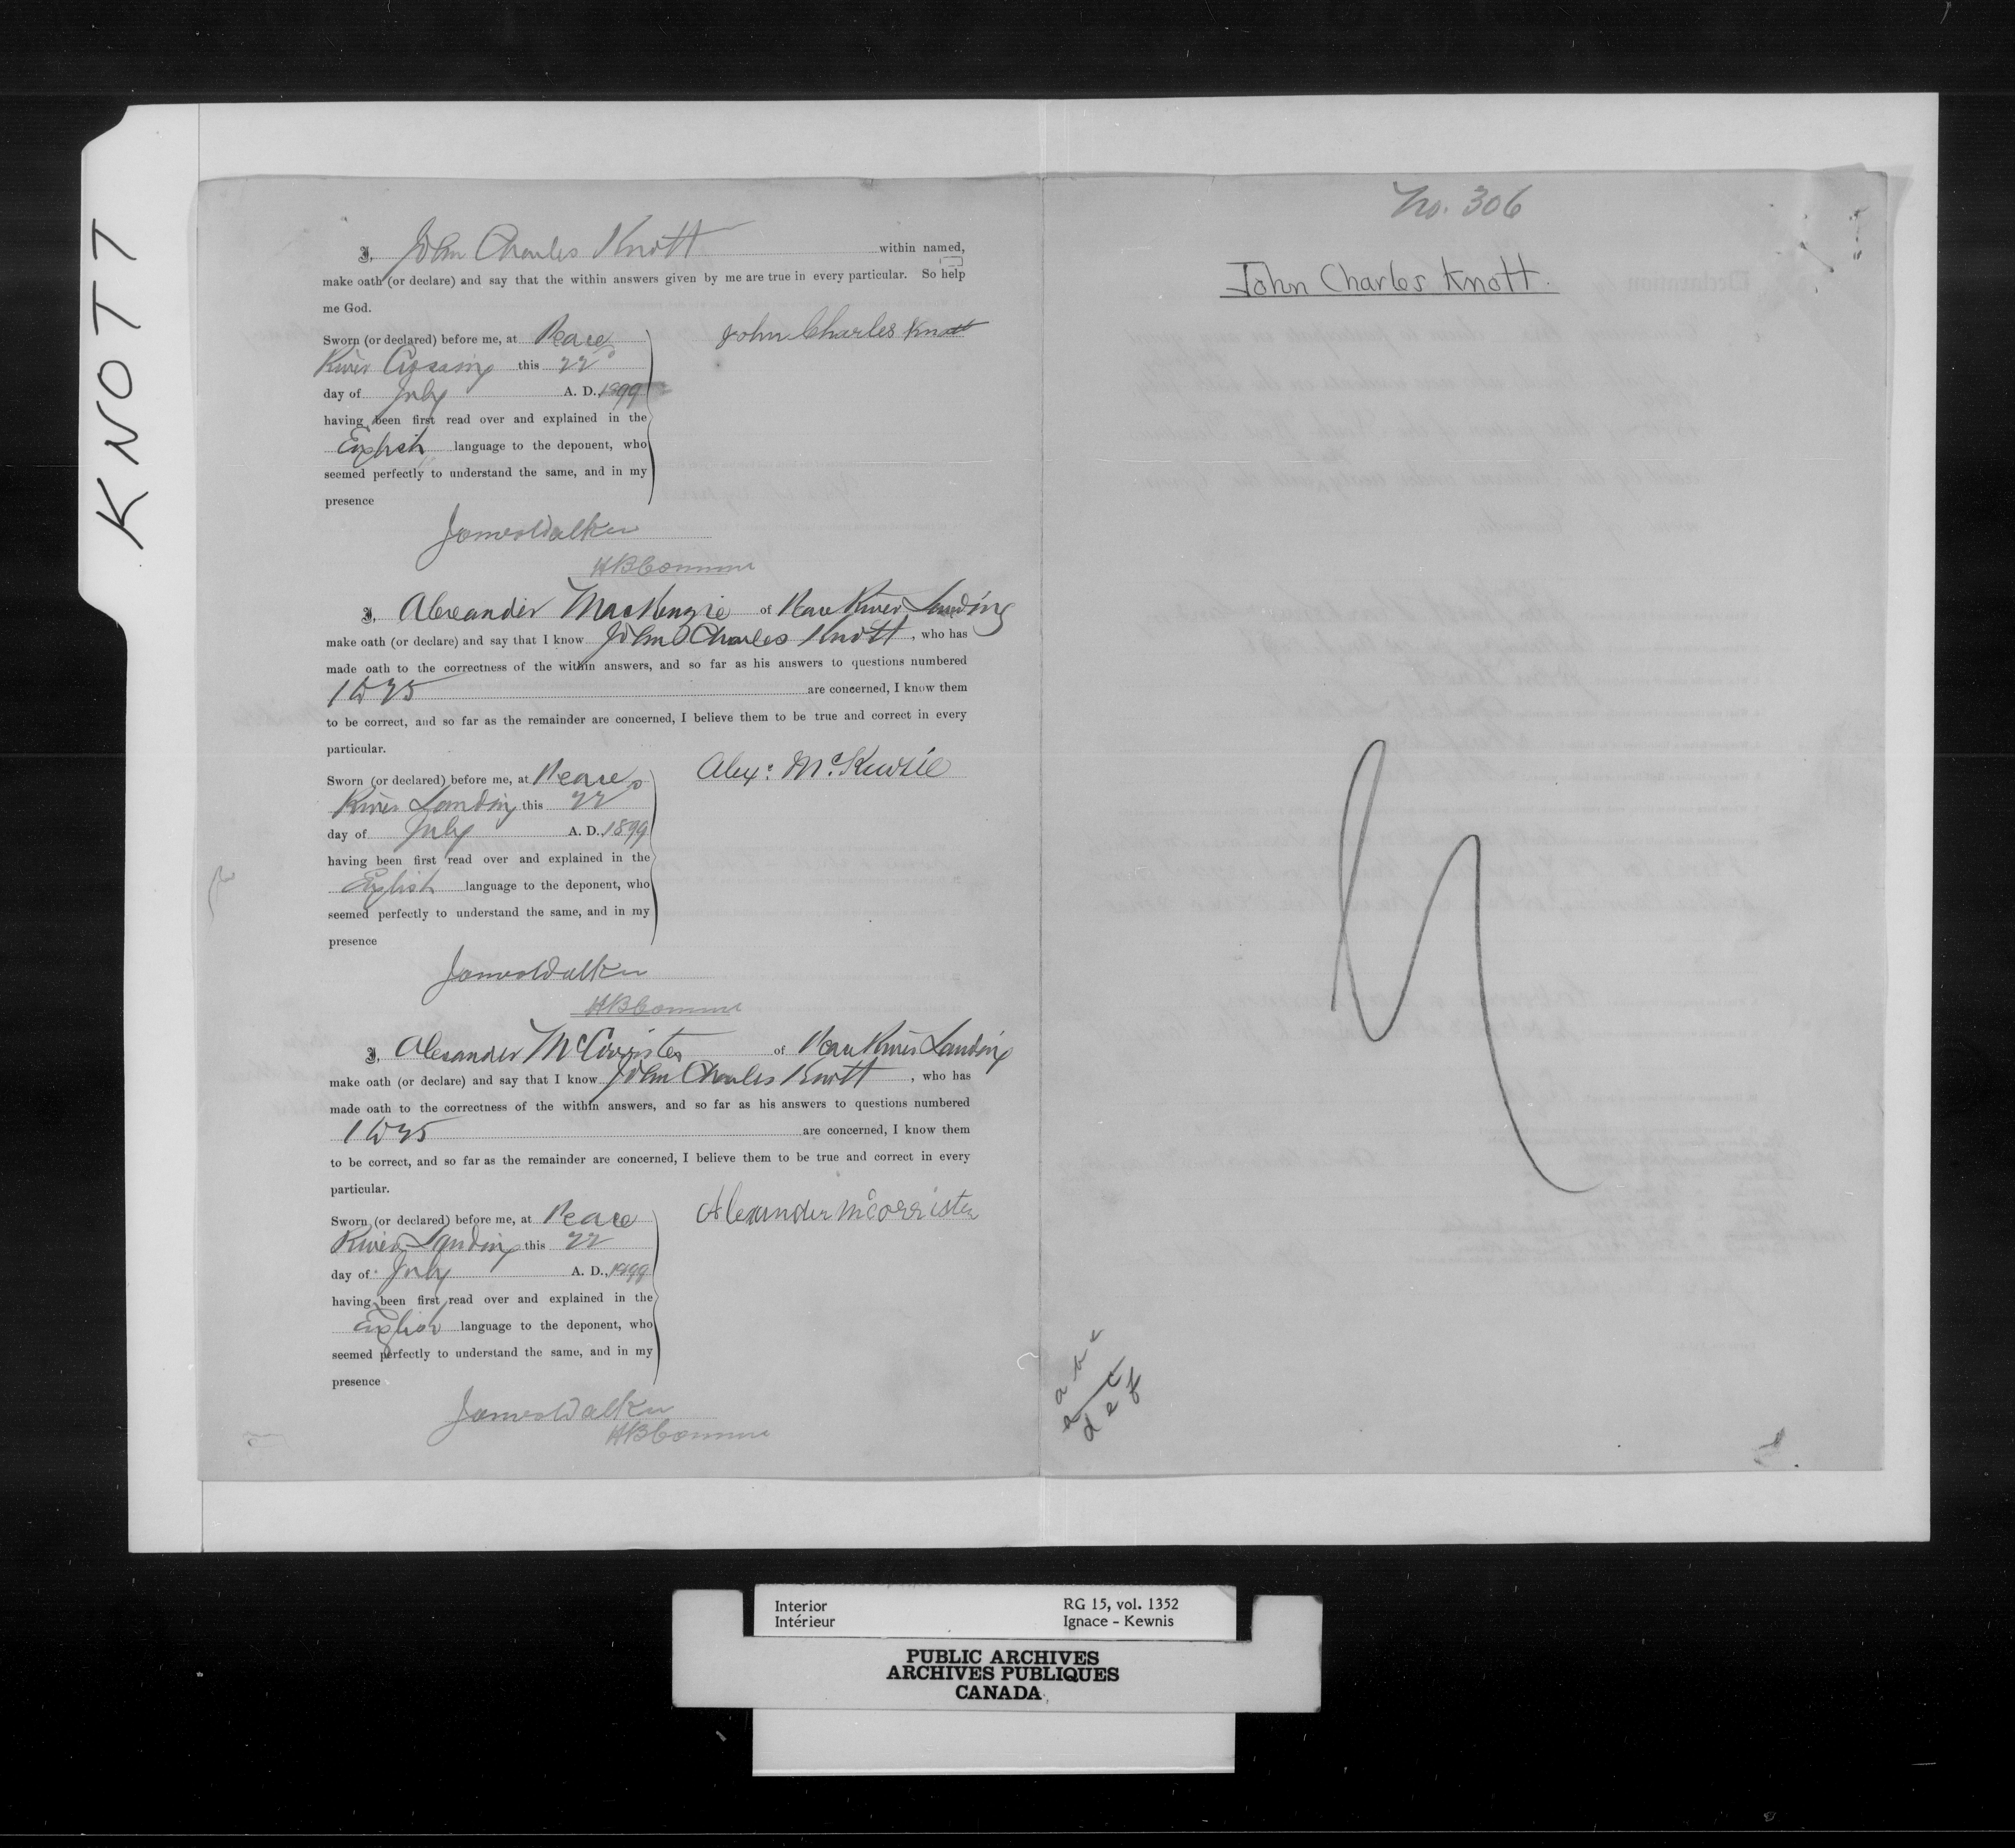 KNOTT
I, John Charles Knott within named,
make oath (or declare) and say that the within answers given by me are true in every particular. So help
me God.
Sworn (or declared) before me, at Peace
River Crossing this 22
day of July A. D. 1899
having been first read over and explained in the
English language to the deponent, who
seemed perfectly to understand the same, and in my
presence
John Charles Knott
James Walker
HB Commr
I, Alexander MacKenzie of Peace River Landing
make oath (or declare) and say that I know John Charles Knott, who has
made oath to the correctness of the within answers, and so far as his answers to questions numbered
1 to 25 are concerned, I know them
to be correct, and so far as the remainder are concerned, I believe them to be true and correct in every
particular.
Sworn (or declared) before me, at Peace
River Landing this 22
day of July A. D., 1899
having been first read over and explained in the
English language to the deponent, who
seemed perfectly to understand the same, and in my
presence
Alex: McKenzie
James Walker
HB Commr
I, Alexander McCorrister of Peace River Landing
make oath (or declare) and say that I know John Charles Knott, who has
made oath to the correctness of the within answers, and so far as his answers to questions numbered
1 to 25 are concerned, I know them
to be correct, and so far as the remainder are concerned, I believe them to be true and correct in every
particular.
Sworn (or declared) before me, at Peace
River Landing this 22
day of July A. D., 1899
having been first read over and explained in the
English language to the deponent, who
seemed perfectly to understand the same, and in my
presence
Alexander McCorrister
James Walker
HB Commr
No. 306
John Charles Knott.
d e f
Interior RG 15, vol. 1352
Intérieur Ignace - Kewnis
PUBLIC ARCHIVES
ARCHIVES PUBLIQUES
CANADA